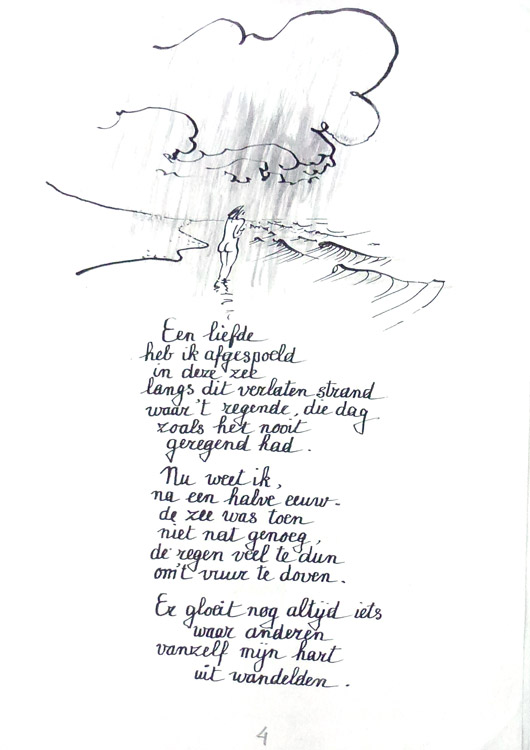 Een liefde
heb ik afgespoeld
in deze zee
langs dit verlaten strand
waar 't regende, die dag
zoals het nooit
geregend had.
Nu weet ik,
na een halve eeuw.
de zee was toen
niet nat genoeg,
de regen veel te dun
om't vuur te doven.
Er gloeit nog altijd iets
waar anderen
vanzelf mijn hart
uit wandelden.
4